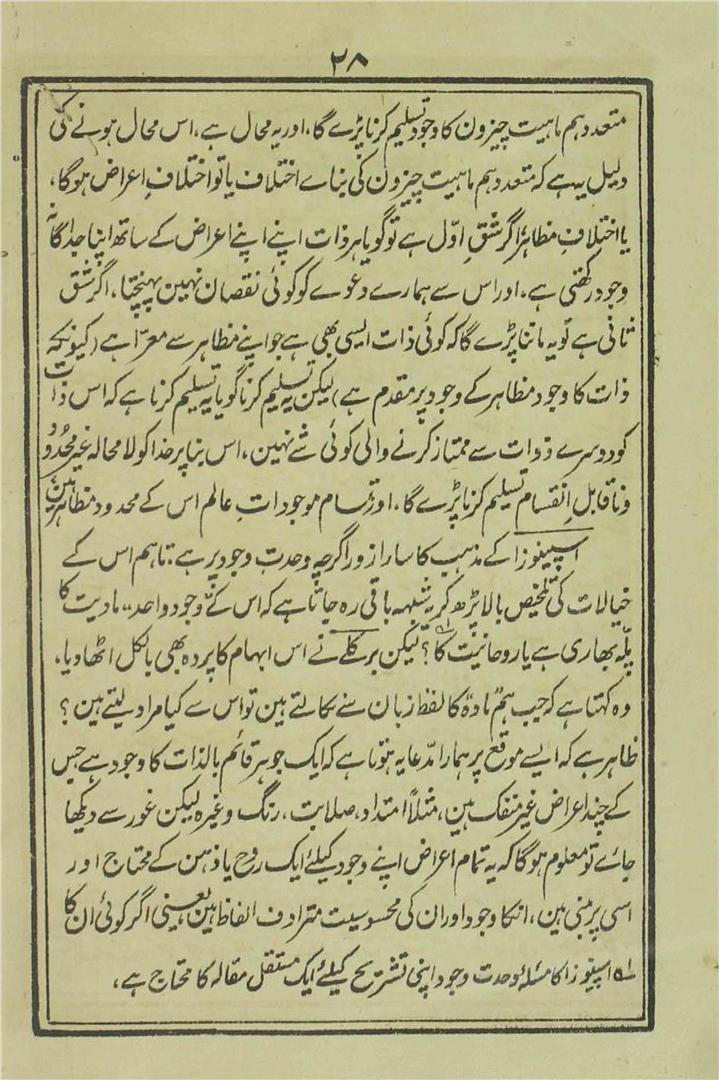 ۲۸
متعدد ہم ماہیت چیزون کا وجود تسلیم کرنا پڑے گا، اور یہ محال ہے، اس محال ہونے کی
دلیل یہ ہے کہ متعدد ہم ماہیت چیزون کی بناے اختلاف یا تو اختلافِ اعراض ہوگا،
یا اختلافِ مظاہر، اگر شقِ اوّل ہے تو گویا ہر ذات اپنے اپنے اعراض کے ساتھ اپنا جداگانہ
وجود رکھتی ہے، اور اس سے ہمارے دعوے کو کوئی نقصان نہین پہنچتا، اگر شق
ثانی ہے تو یہ ماننا پڑے گا کہ کوئی ذات ایسی بھی ہے جو اپنے مظاہر سے معرّا ہے (کیونکہ
ذات کا وجود مظاہر کے وجود پر مقدم ہے) لیکن یہ تسلیم کرنا گویا یہ تسلیم کرنا ہے کہ اس ذات
کو دوسرے ذوات سے ممتاز کرنے والی کوئی شے نہین، اس بنا پر خدا کو لا محالہ غیر محدود
و ناقابلِ انقسام تسلیم کرنا پڑے گا، اور تمام موجوداتِ عالم اس کے محدود مظاہر ہین
اسپینوزا کے مذہب کا سارا زور اگرچہ وحدت وجود پر ہے، تاہم اس کے
خیالات کی تلخیص بالا پڑھ کر یہ شبہہ باقی رہ جاتا ہے کہ اس کے "وجود واحد" مادیت کا
پلّہ بھاری ہے یا روحانیت کا؟ لیکن برکلے نے اس ابہام کا پردہ بھی بالکل اٹھا دیا،
وہ کہتا ہے کہ جب ہم "مادہ" کا لفظ زبان سے نکالتے ہین تو اس سے کیا مراد لیتے ہین؟
ظاہر ہے کہ ایسے موقع پر ہمارا مدّعا یہ ہوتا ہے کہ ایک جوہر قائم بالذات کا وجود ہے جس
کے چند اعراض غیر منفک ہین، مثلاً امتداد، صلابت، رنگ وغیرہ لیکن غور سے دیکھا
جاے تو معلوم ہوگا کہ یہ تمام اعراض اپنے وجود کیلئے ایک روح یا ذہن کے محتاج اور
اسی پر مبنی ہین، انکا وجود اور ان کی محسوسیت مترادف الفاظ ہین یعنی اگر کوئی ان کا
لہ اسپینوزا کا مسئلۂ وحدت وجود اپنی تشریح کیلئے ایک مستقل مقالہ کا محتاج ہے،